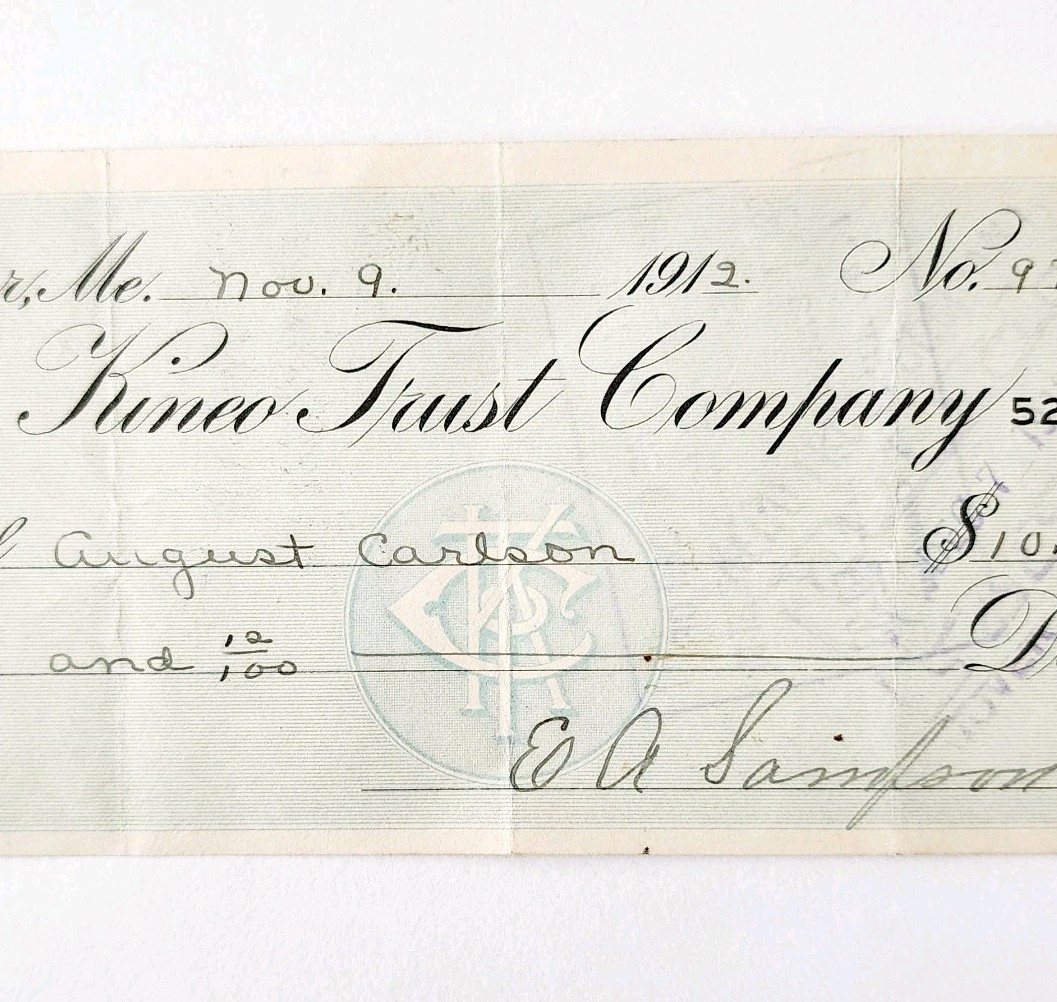 r, Me. Nov. 9. 1912. No. 9
Kineo Trust Company 52
August Carlson $10.
and 12/100 D
E A Sampson